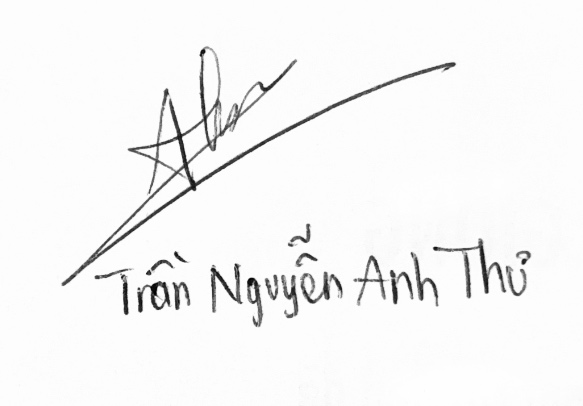 Trần Nguyễn Anh Thư